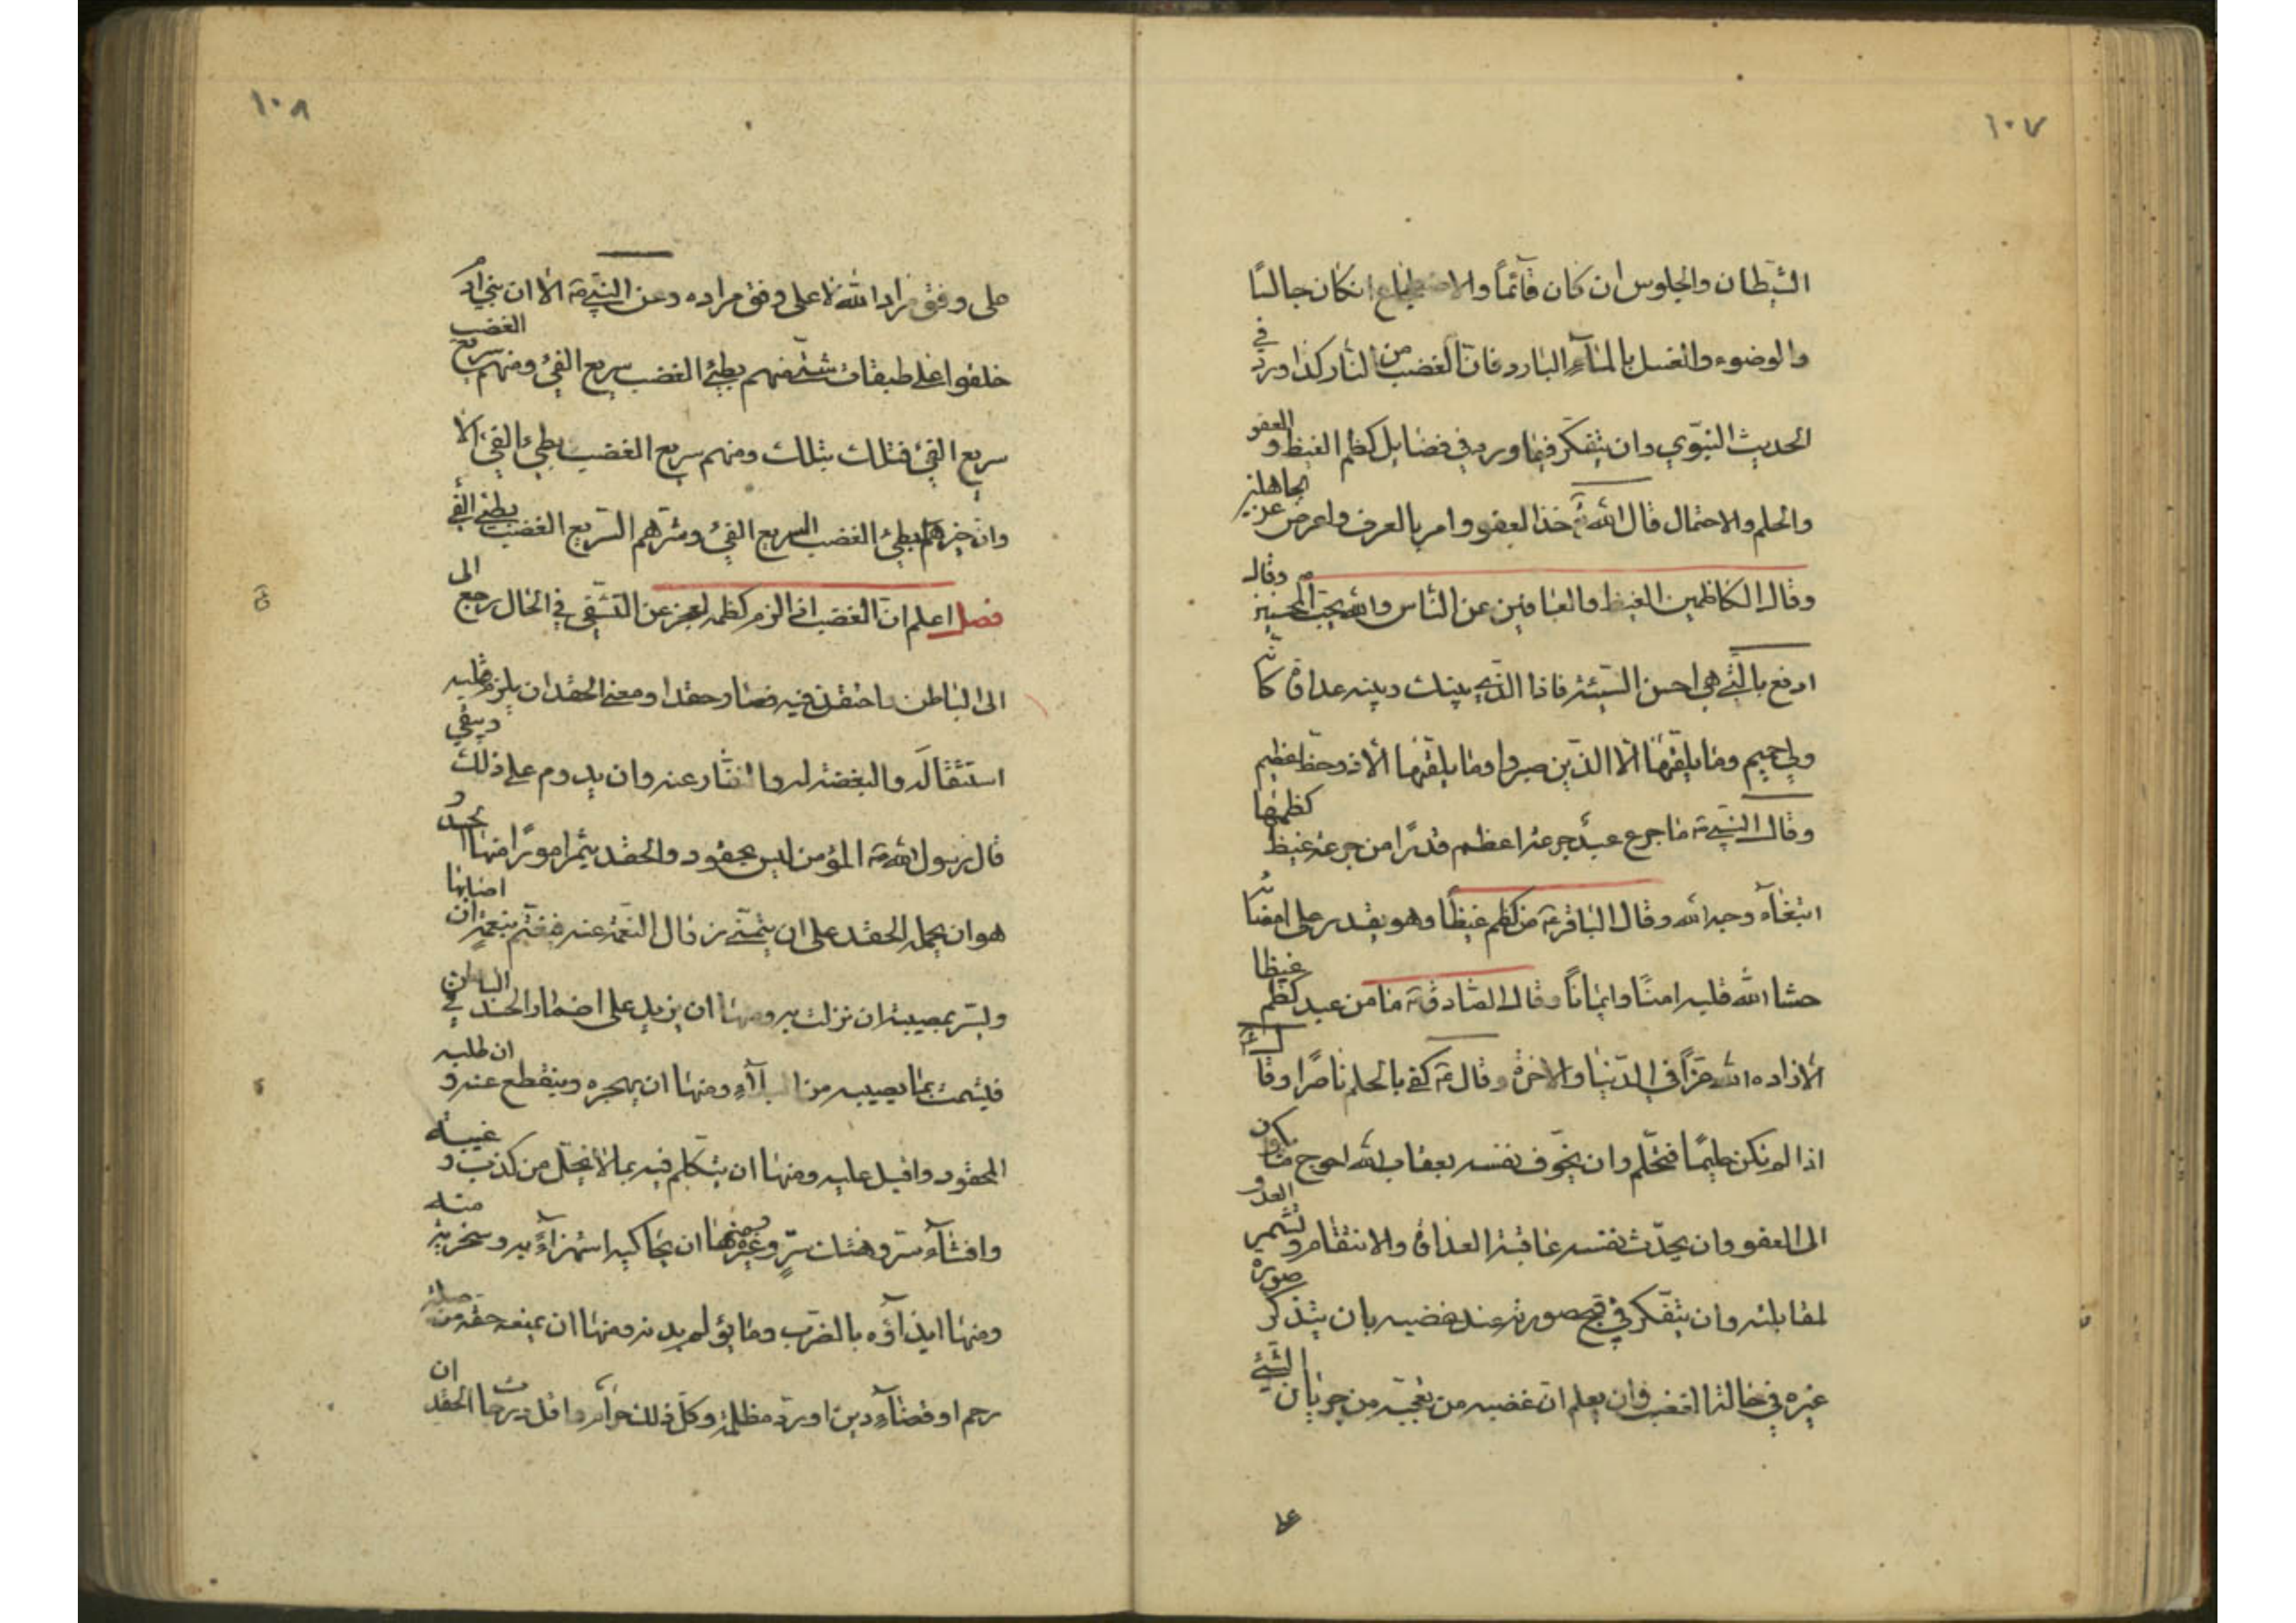 ١٠٧
الشيطان والجلوس ان كان قآئماً والاضطجاع انكان جالسًا
والوضوء والغسل بالمآء البارد فانّ الغضب من النار كذا ورد في
الحديث النبّوي وان يتفكّر فيما ورد في فضايل كظم الغيظ و العفو
والحلم والاحتمال قال الله تع خذ العفو وامر بالعرف واعرض عن الجاهلين
وقال الكاظمين الغيظ والعافين عن النّاس والله يحبّ المحسنين وقال
ادفع بالّتي هي احسن السّيئة فاذا الذّي بينك وبينه عداوة كانّه
ولي حميم وما يلقّيها الّا الذّين صبروا وما يلقيها الّا ذو حظ عظيم
وقال النبي ص ما جرع عبد جرعة اعظم قدرًا من جرعة غيظ كظمها
ابتغآء وجه الله وقال الباقر ع من كظم غيظًا وهو يقدر على امضائه
حشا الله قلبه امنًا وايمانًا وقال الصّادق ع ما من عبد كظم غيظا
الّا زاده الله عزًّا في الدّنيا والاخرة وقال ع كفى بالحلم ناصرًا وقال
اذا لم تكن حليمًا فتحلّم وان يخوّف نفسه بعقاب الله احوج ما يكون
الى العفو وان يحدّث نفسه عاقبة العداوة والانتقام وتشمير العدو
لمقابلته وان يتفّكر في قبح صورته عند غضبه بان يتذكّر صورة
غيره في حالة الغضب وان يعلم انّ غضبه من تعجّبه من جريان الشيئ
على
١٠٨
على وفق مراد الله لا على وفق مراده وعن النبي ص الا ان بني آدم
خلقوا على طبقات شتّى فمنهم بطيئ الغضب سريع الفيئ ومنهم سريع الغضب
سريع الفيئ فتلك بتلك ومنهم سريع الغضب بطيئ الفيئ الا
وانّ خيرهم البطيئ الغضب السريع الفيئ وشرّهم السّريع الغضب بطيئ الفيئ
فصل اعلم انّ الغضب اذا لزم كظمه لعجز عن التشّفي في الحال رجع الى
الى الباطن واحتقن فيه فصار حقدا ومعنى الحقد ان يلزم قلبه
استثقاله والبغضة له والنفّار عنه وان يدوم على ذلك ويبقي
قال رسول الله ص المؤمن ليس بحقود والحقد يثمر امورًا منها الحسد و
هو ان يحمله الحقد على ان يتمنّى زوال النّعمة عنه فيغتّم بنعمة ان اصابها
ويسّر بمصيبة ان نزلت به ومنها ان يزيد على اضمار الحسد في الباطن
فيشمت بما يصيبه من البلآء ومنها ان يهجره وينقطع عنه و ان طلبه
المحقود واقبل عليه ومنها ان يتكلّم فيه بما لا يحلّ من كذب و غيبة
وافشآء سرّ وهتك سترٍ وغيره ومنها ان يحاكيه استهزاءً به وسخرية منه
ومنها ايذآؤه بالضرب وما يؤلم بدنه ومنها ان يمنعه حقه من صلة
رحم او قضآء دين او ردّ مظلمة وكلّ ذلك حرام واقل درجات الحقد ان